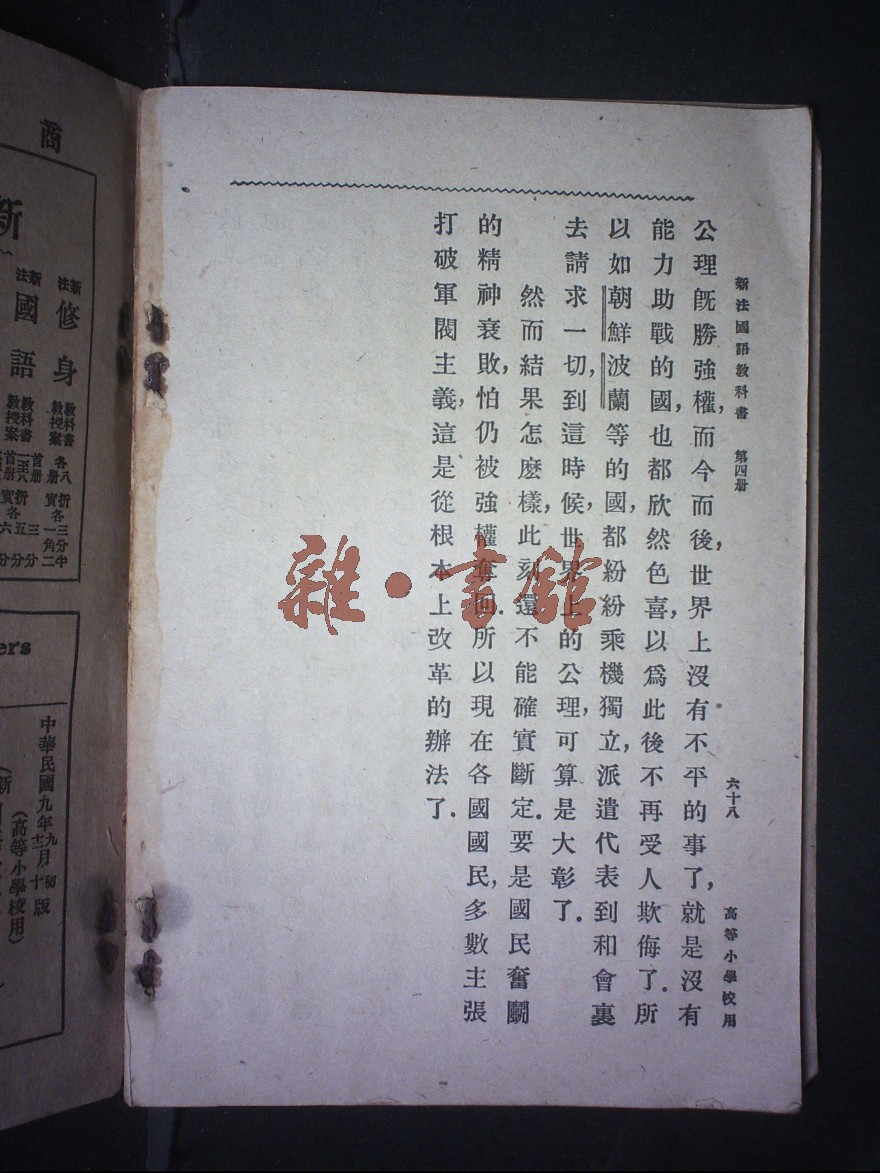 新法國語教科書 第四册 六十八 高等小學校用
公理既勝強權，而今而後，世界上沒有不平的事了，就是沒有
能力助戰的國，也都欣然色喜，以爲此後不再受人欺侮了．所
以如朝鮮波蘭等的國，都紛紛乘機獨立，派遣代表到和會裏
去請求一切，到這時候，世界上的公理，可算是大彰了．
然而結果怎麽樣，此刻還不能確實斷定．要是國民奮鬬
的精神衰敗，怕仍被強權奪回．所以現在各國國民，多數主張
打破軍閥主義，這是從根本上改革的辦法了．
雜·書館
商
新
新法修身 教科書 教授案 各八册
新法國語 教科書 教授案
ers
中華民國九年
(高等小學校用)